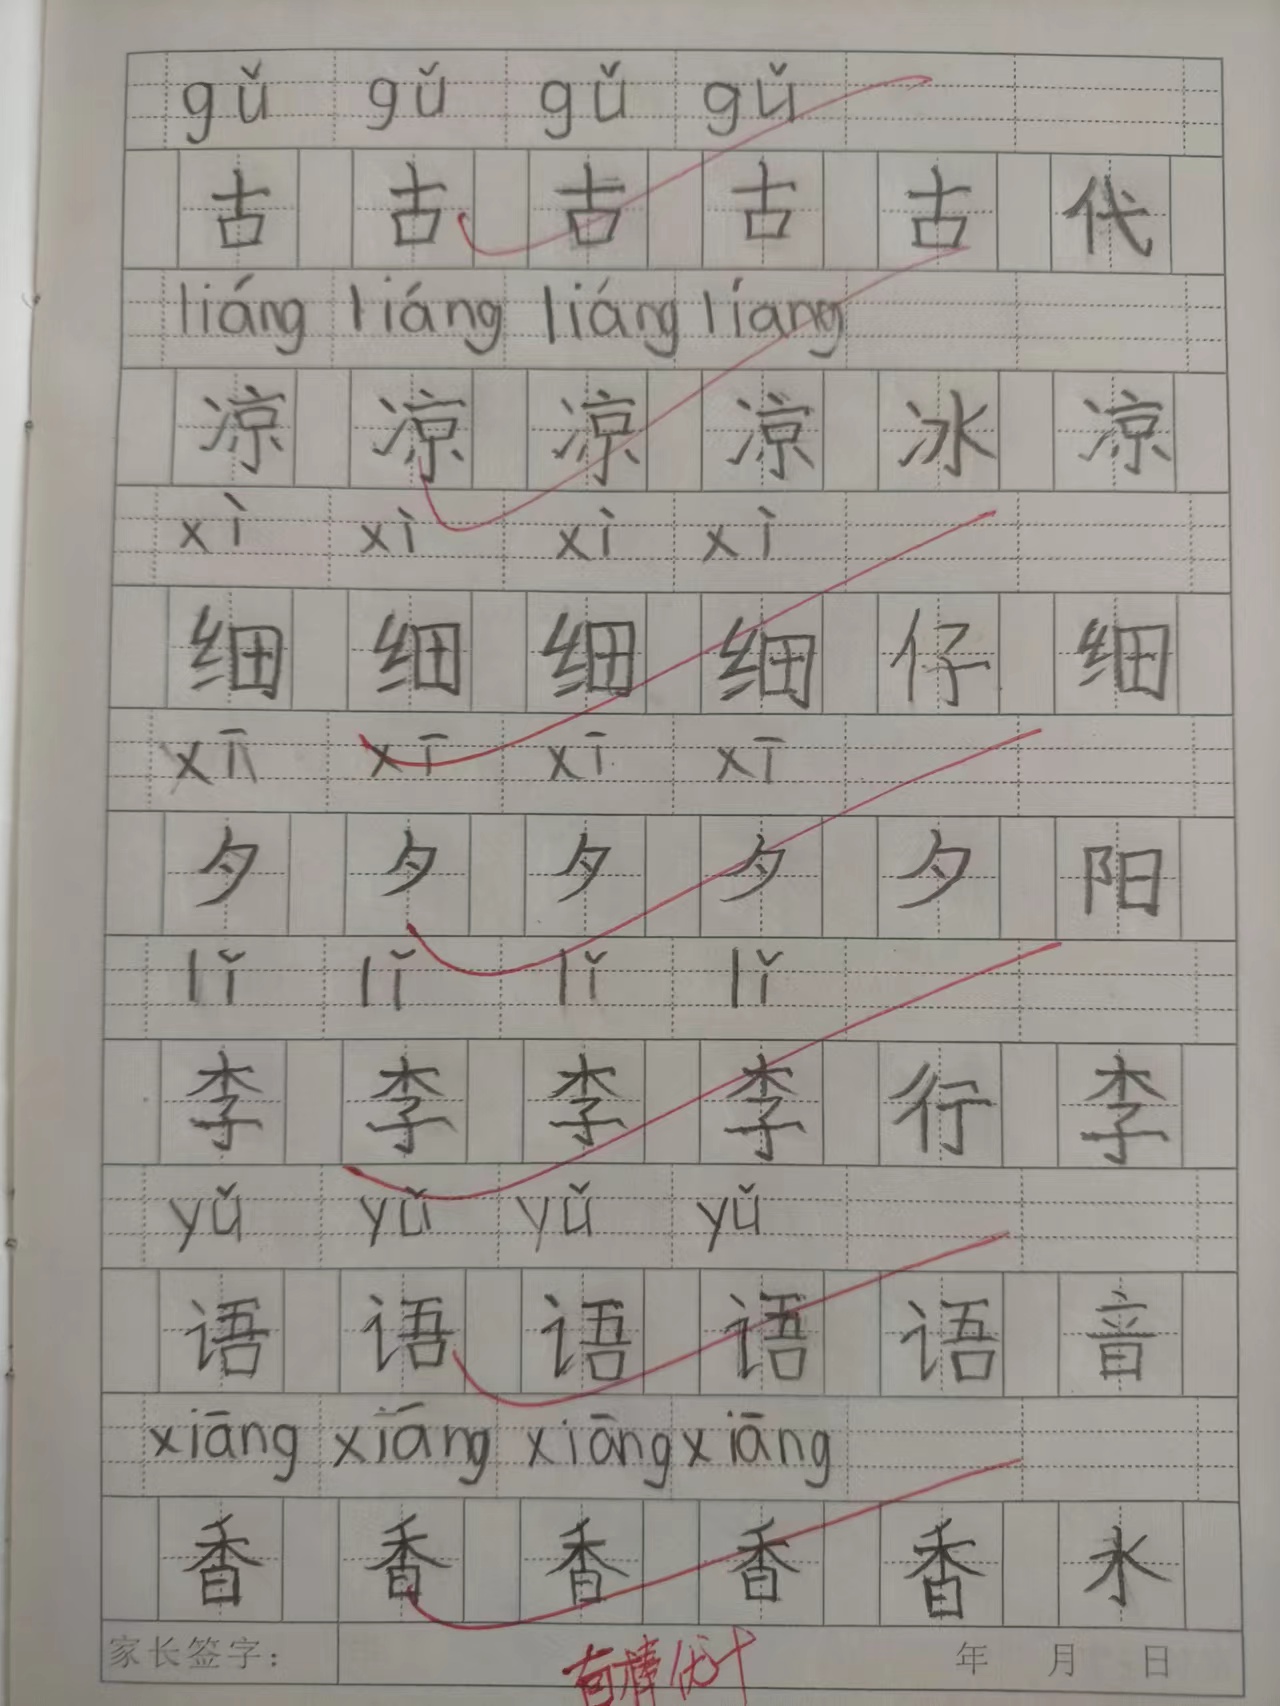 gǔ gǔ gǔ gǔ
古 古 古 古 古 代
liáng liáng liáng líang
凉 凉 凉 凉 冰 凉
xì xì xì xì
细 细 细 细 仔 细
xī xī xī xī
夕 夕 夕 夕 夕 阳
lǐ lǐ lǐ lǐ
李 李 李 李 行 李
yǔ yǔ yǔ yǔ
语 语 语 语 语 音
xiāng xiāng xiāng xiāng
香 香 香 香 香 水
家长签字： 真棒优十 年 月 日